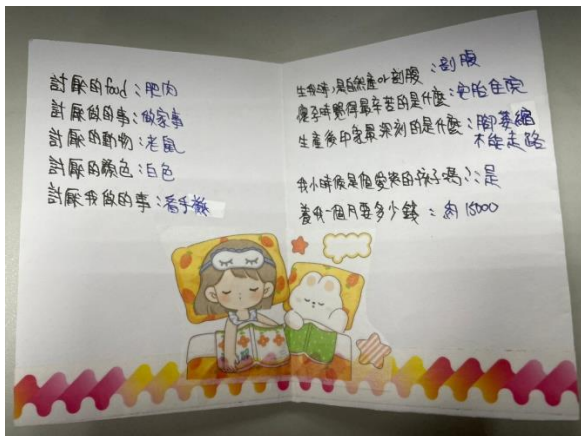 討厭的food：肥肉
討厭做的事：做家事
討厭的動物：老鼠
討厭的顏色：白色
討厭我做的事：看手機
生我時，是自然產or剖腹：剖腹
懷孕時覺得最辛苦的是什麼：安胎住院
生產後印象最深刻的是什麼：腳萎縮
不能走路
我小時候是個愛哭的孩子嗎？：是
養我一個月要多少錢：約15000